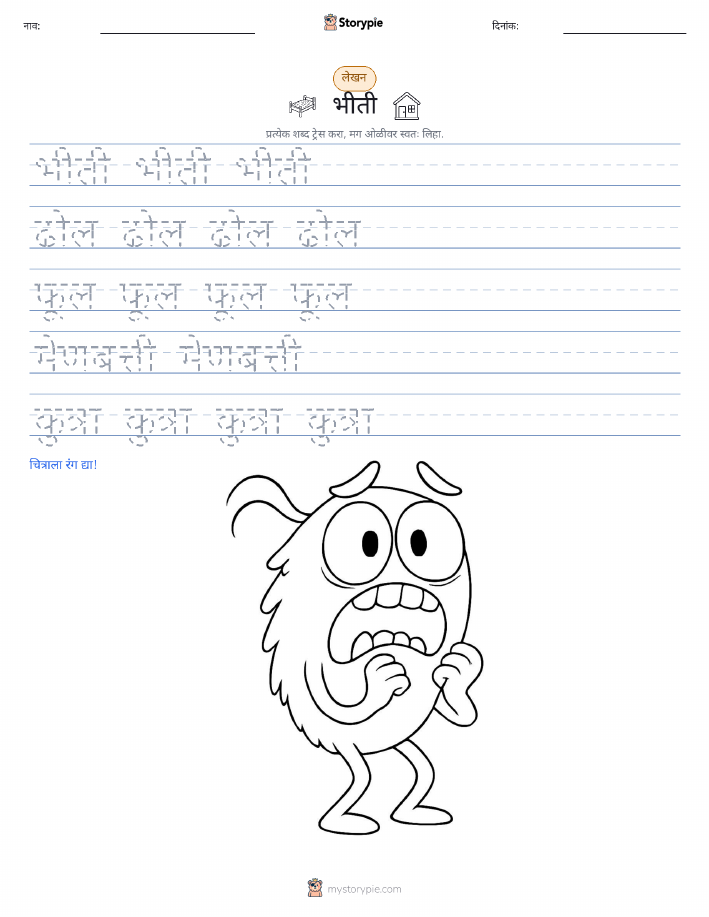 नाव: Storypie दिनांक:
लेखन
भीती
प्रत्येक शब्द ट्रेस करा, मग ओळीवर स्वतः लिहा.
भीती भीती भीती
ढोल ढोल ढोल ढोल
फूल फूल फूल फूल
मेणबत्ती मेणबत्ती
कुत्रा कुत्रा कुत्रा कुत्रा
चित्राला रंग द्या!
mystorypie.com